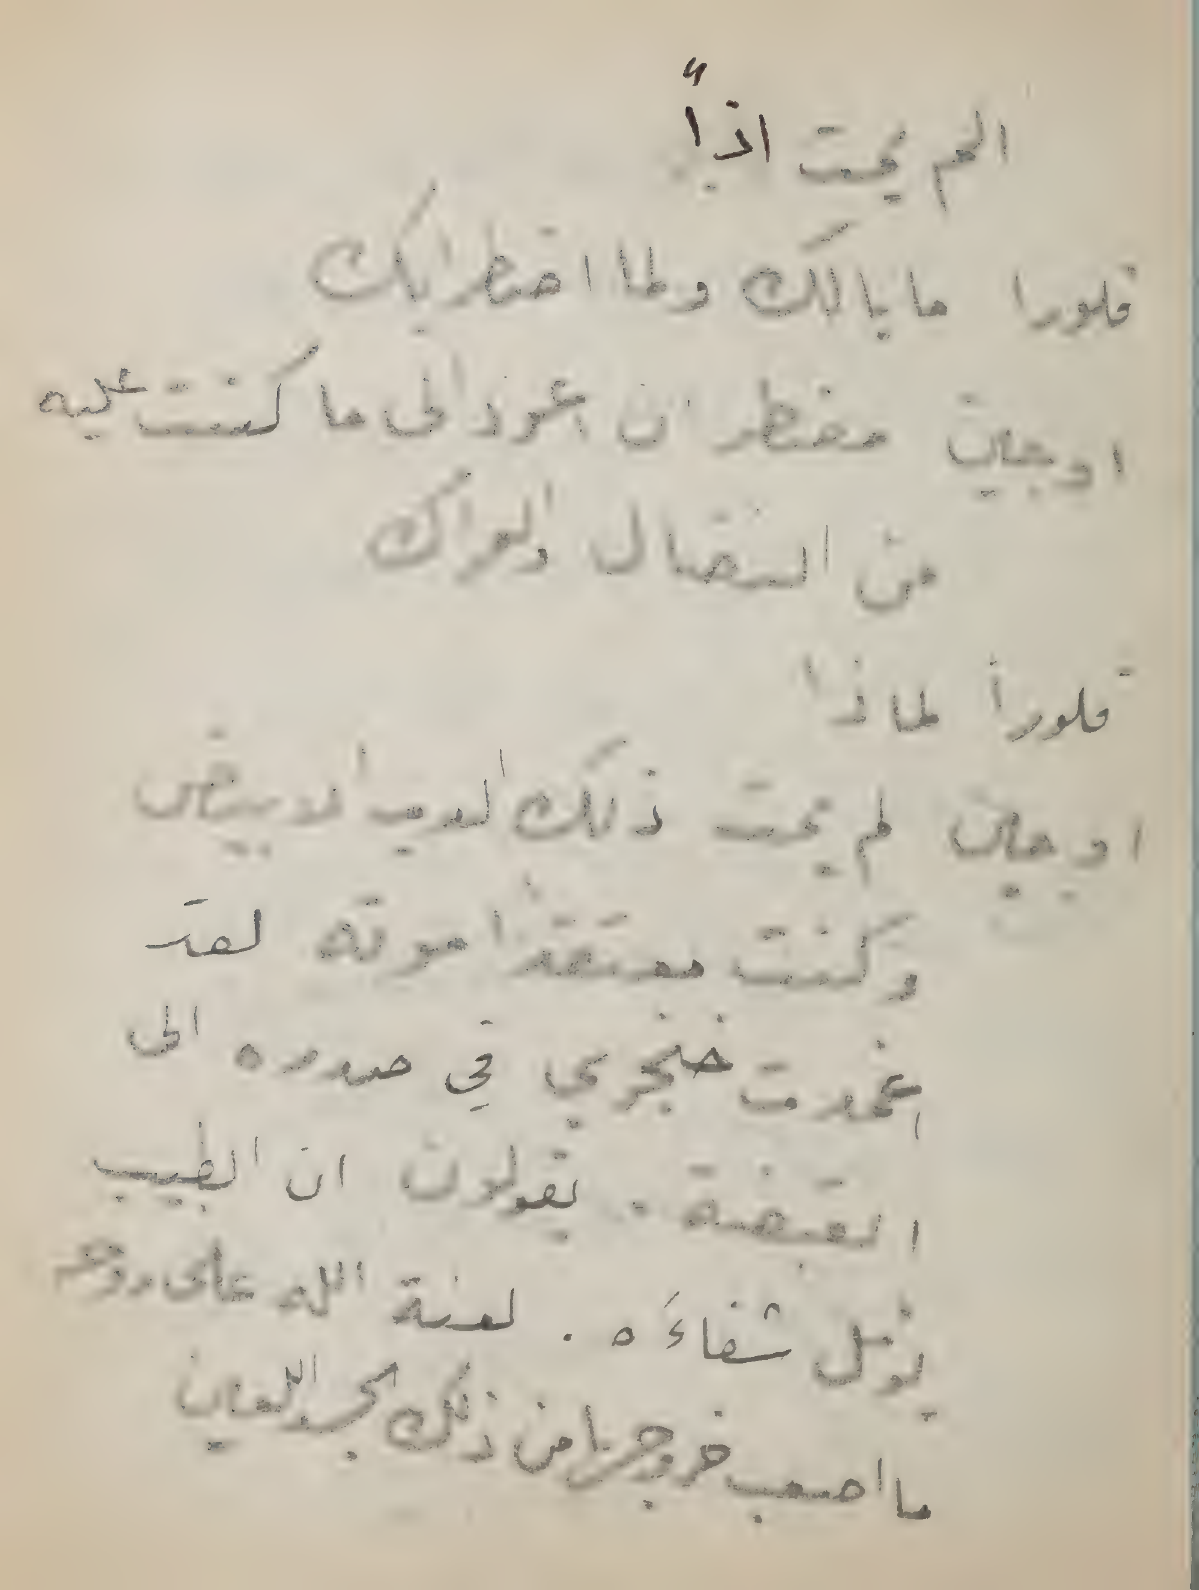 الم يمت اذاً
فلورا ما بالك ولما اضطرابك
اوجين مضطر ان اعود الى ما كنت عليه
من النضال والعراك
فلورا لماذا
اوجين لم يمت ذلك الدب الابيض
وكنت معتقداً موته لقد
اغمدت خنجري في صدره الى
القبضة . يقولون ان الطبيب
يؤمل شفاءه . لعنة الله على روحه
ما اصعب خروجها من ذلك الجسد اللعين